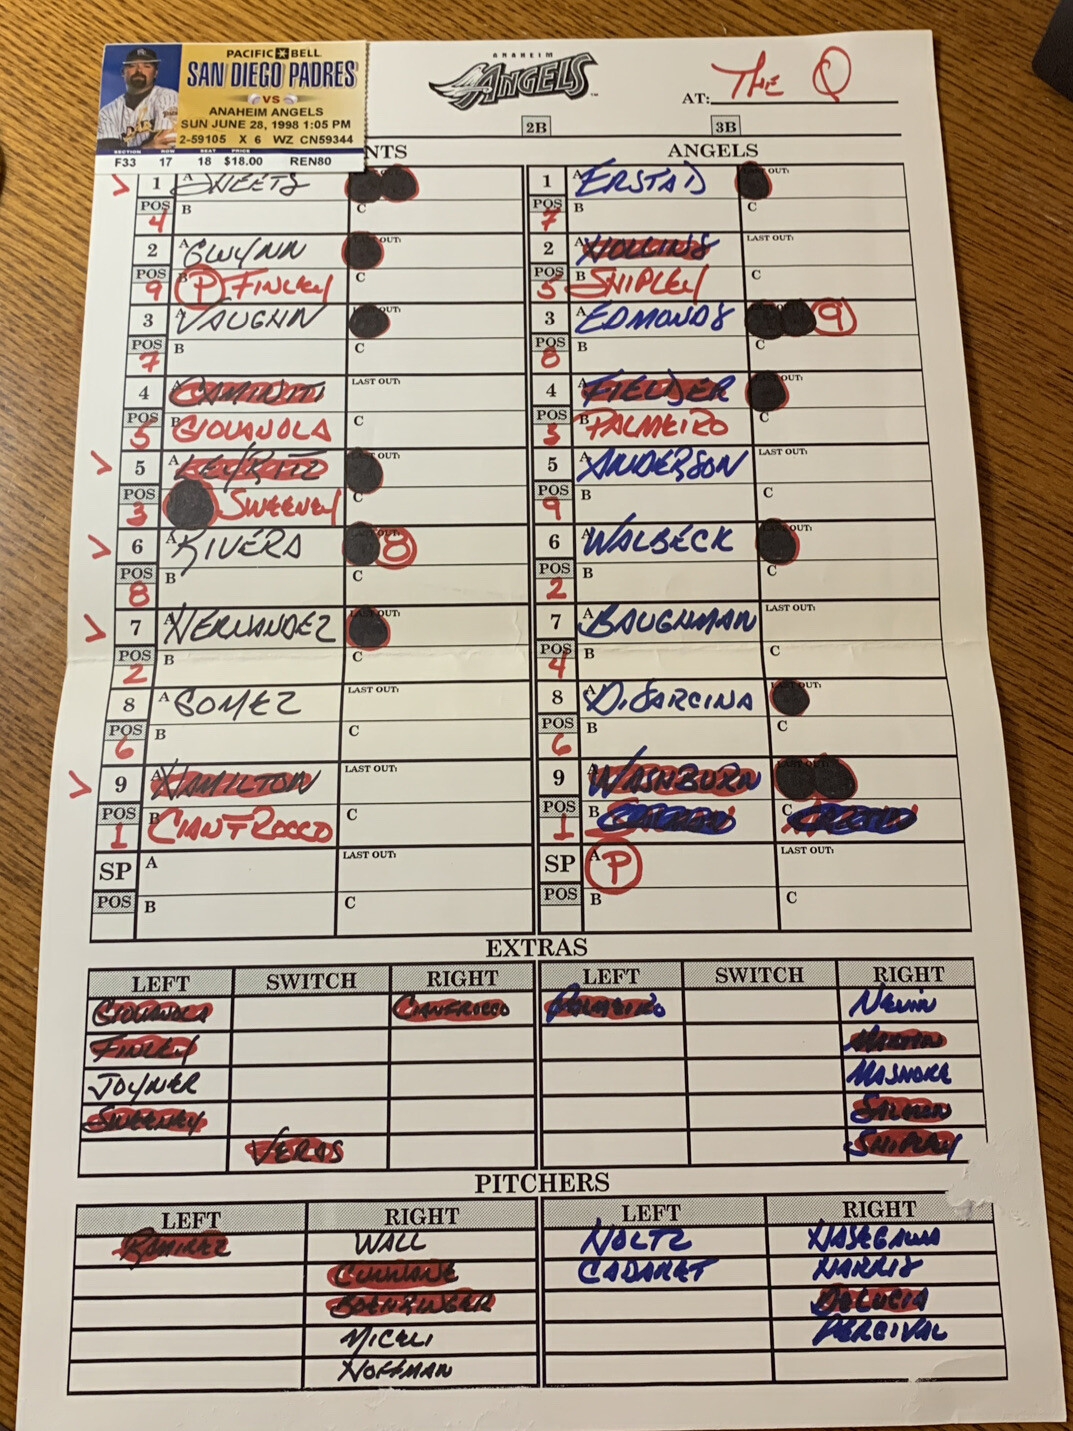 PACIFIC BELL
SAN DIEGO PADRES
VS
ANAHEIM ANGELS
SUN JUNE 28, 1998 1:05 PM
2-59105 X 6 WZ CN59344
SECTION ROW SEAT PRICE
F33 17 18 $18.00 REN80
ANAHEIM
ANGELS
AT: THE Q
2B 3B
NTS ANGELS
1 A SHEETS 1 A ERSTAD OUT:
POS 4 B C POS 7 B C
2 A GWYNN OUT: 2 A HOLLINS LAST OUT:
POS 9 B P FINLEY C POS 5 B SHIPLEY C
3 A VAUGHN OUT: 3 A EDMONDS 9
POS 7 B C POS 8 B C
4 A CAMINITI LAST OUT: 4 A FIELDER OUT:
POS 5 B GIOVANOLA C POS 3 B PALMEIRO C
5 A LEYRITZ OUT: 5 A ANDERSON LAST OUT:
POS 3 SWEENEY C POS 9 B C
6 A RIVERA OUT: 8 6 A WALBECK OUT:
POS 8 B C POS 2 B C
7 A HERNANDEZ OUT: 7 A BAUGHMAN LAST OUT:
POS 2 B C POS 4 B C
8 A GOMEZ LAST OUT: 8 A DISARCINA OUT:
POS 6 B C POS 6 B C
9 A HAMILTON LAST OUT: 9 A WASHBURN
POS 1 B CIANFROCCO C POS 1 B C
SP A LAST OUT: SP A P LAST OUT:
POS B C POS B C
EXTRAS
LEFT SWITCH RIGHT LEFT SWITCH RIGHT
GIOVANOLA CIANFROCCO PALMEIRO NEVIN
FINLEY MARTIN
JOYNER MASHORE
SWEENEY SALMON
VERAS SHIPLEY
PITCHERS
LEFT RIGHT LEFT RIGHT
RAMIREZ WALL HOLTZ HASEGAWA
CUNNANE CADARET HARRIS
BOEHRINGER DELUCIA
MICELI PERCIVAL
HOFFMAN